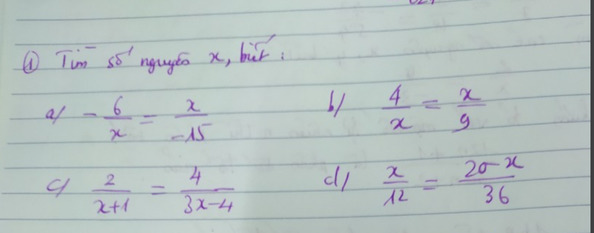 ① Tìm số nguyên x, biết:
a/ -6/x = x/-15
b/ 4/x = x/9
c/ 2/(x+1) = 4/(3x-4)
d/ x/12 = (20-x)/36